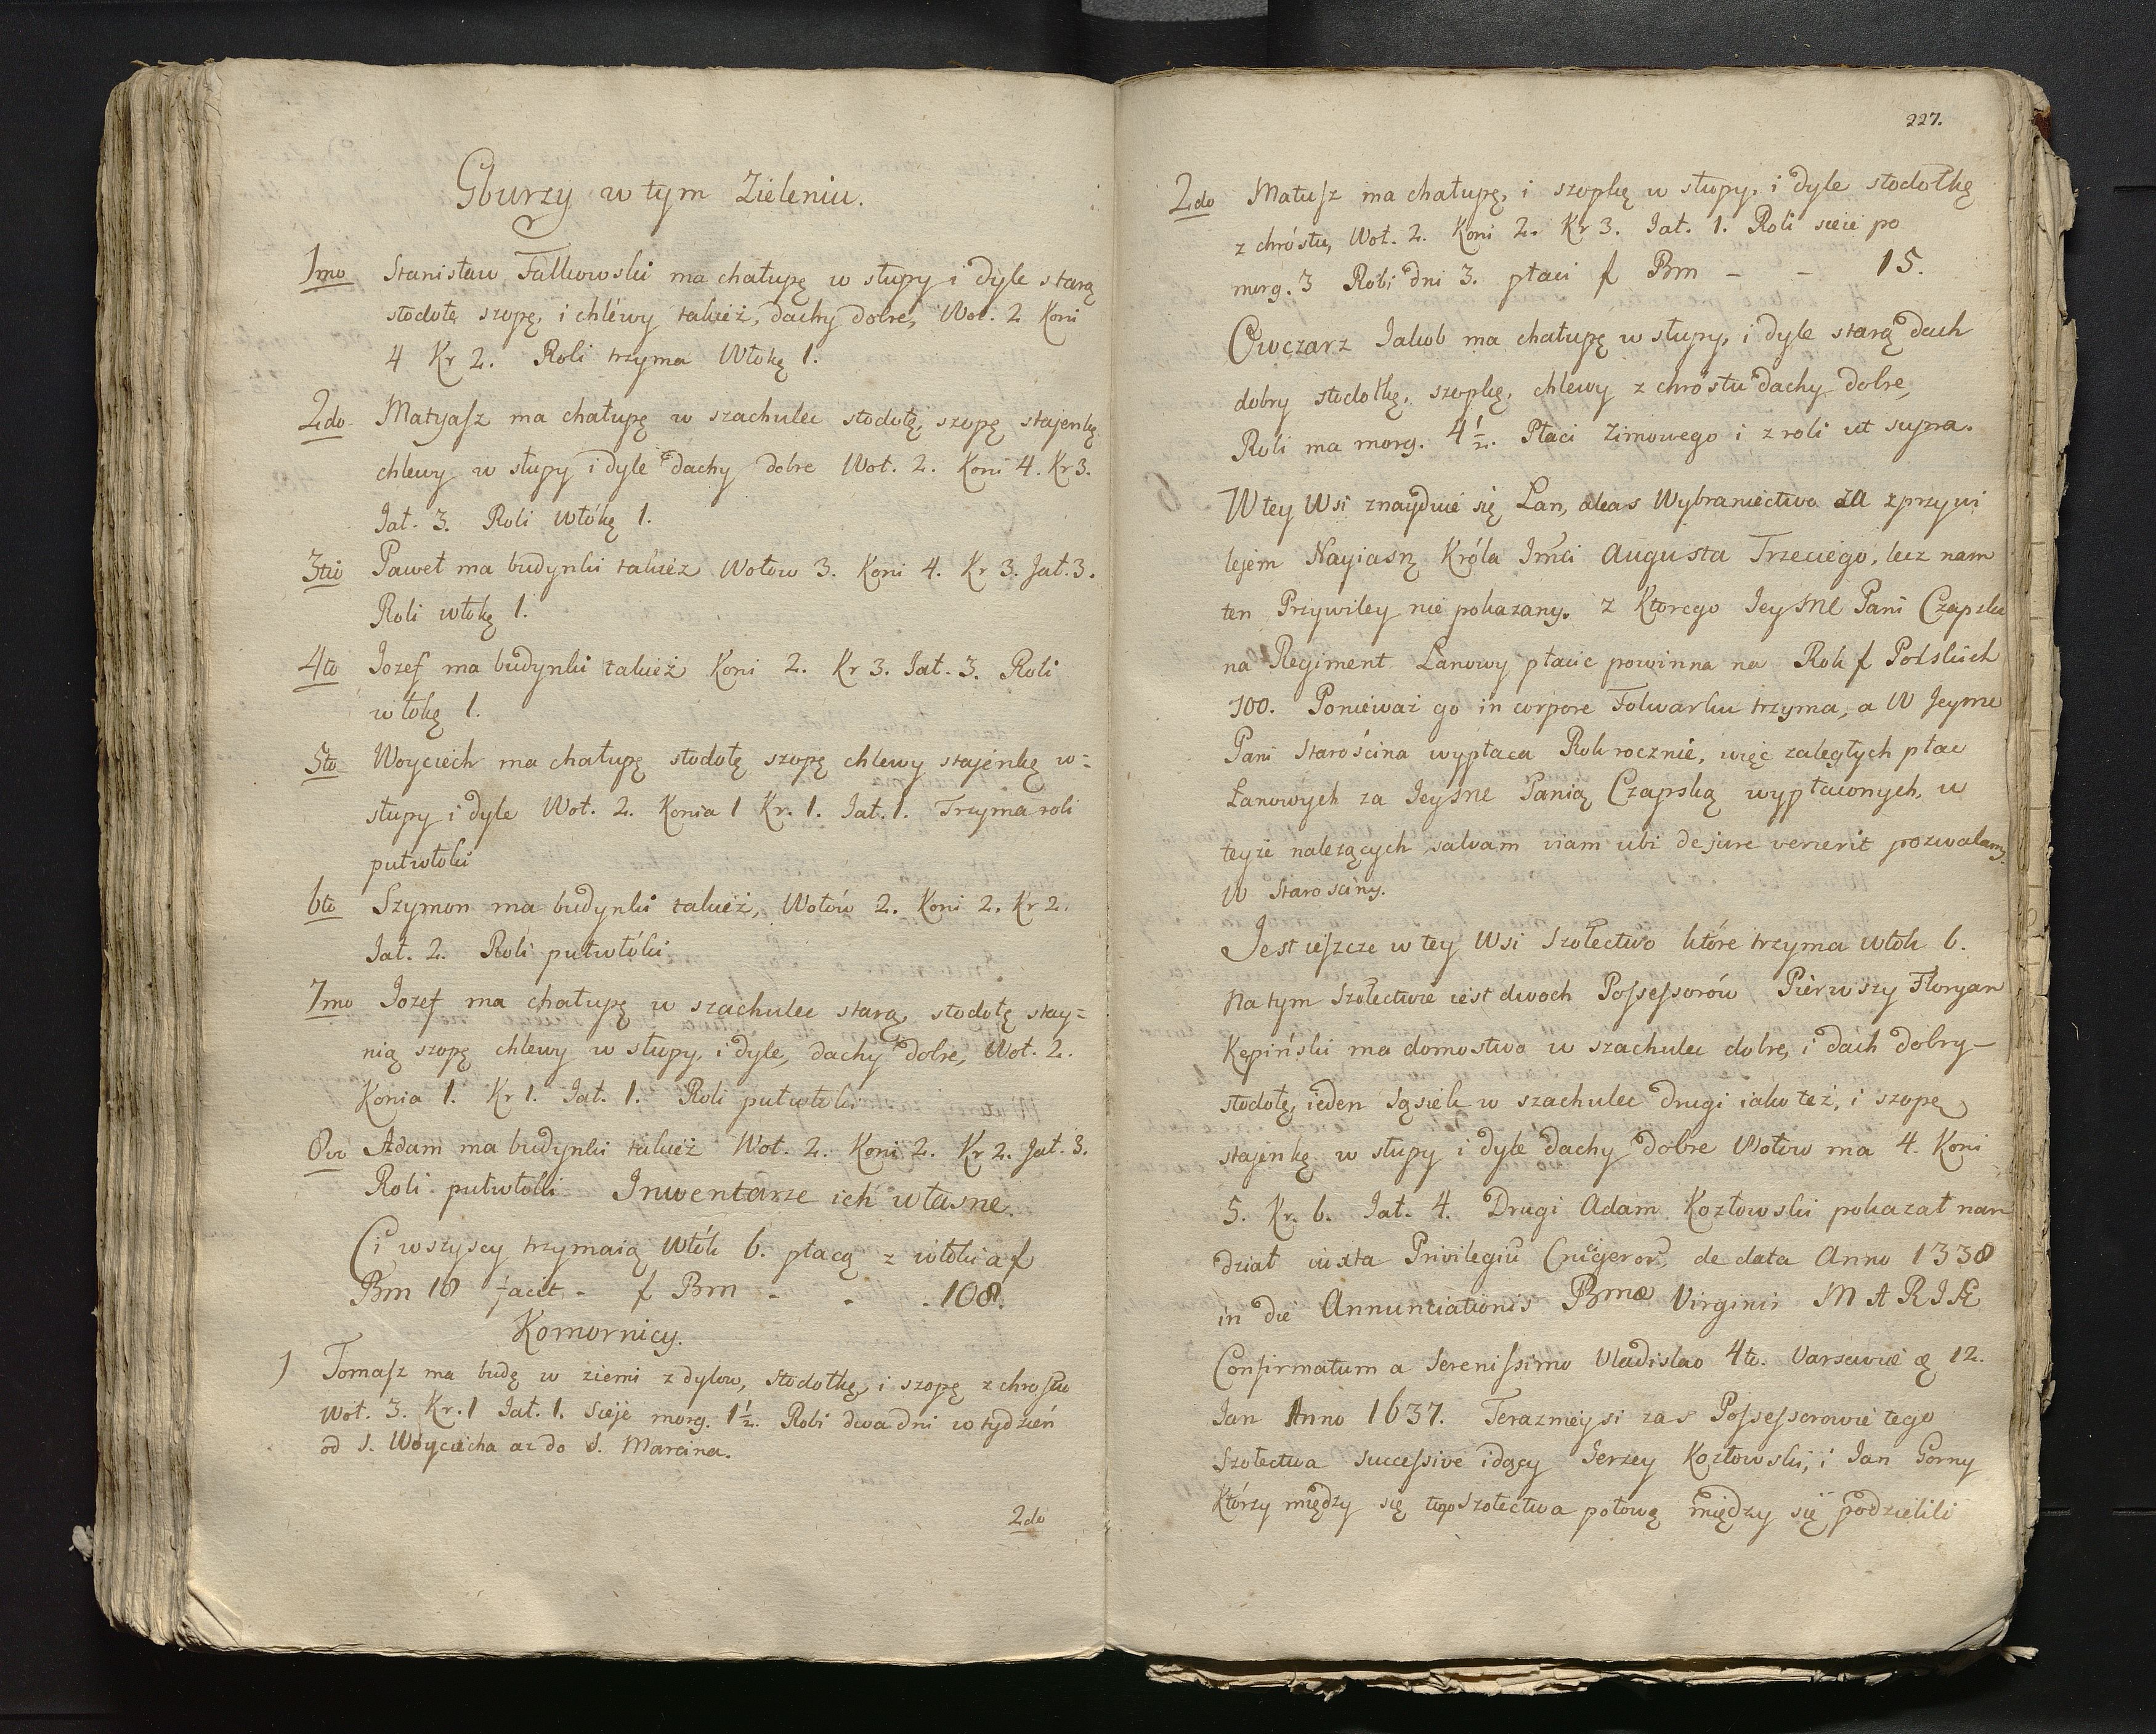 Gburzy w tym Zieleniu.
1mo Stanisław Falkowski ma chałupę w słupy i dyle starą
stodołę szopę, i chléwy takież, dachy dobre, Woł. 2 Koni
4 Kr 2. Roli trzyma Włokę 1.
2do Matyasz ma chałupę w szachulec stodołę, szopę stajenkę
chlewy w słupy i dyle dachy dobre Woł. 2. Koni 4. Kr 3.
Jał. 3. Roli włókę 1.
3tio Paweł ma budynki takież Wołow 3. Koni 4. Kr 3. Jał. 3.
Roli włokę 1.
4to Jozef ma budynki takież Koni 2. Kr 3. Jał. 3. Roli
włokę 1.
5to Woyciech ma chałupę stodołę szopę chlewy stajenkę w=
słupy i dyle Woł. 2. Konia 1 Kr. 1. Jał. 1. Trzyma roli
pułwłoki
6to Szymon ma budynki takież, Wołów 2. Koni 2. Kr 2.
Jał. 2. Roli pułwłóki
7mo Jozef ma chałupę w szachulec starą, stodołę stay=
nią szopę chlewy w słupy, i dyle, dachy dobre, Woł. 2.
Konia 1. Kr 1. Jał. 1. Roli pułwłoki
8vo Adam ma budynki takież Woł. 2. Koni 2. Kr 2. Jał. 3.
Roli pułwłoki Inwentarze ich własne.
Ci wszyscy trzymaią Włók 6. płacą z włoki a f
Bm 18 facit - f Bm - - - 108.
Komornicy.
1 Tomasz ma budę w ziemi z dylow, stodołkę, i szopę z chrostu
Woł. 3. Kr. 1 Jał. 1. Sieje morg. 1½. Robi dwa dni w tydzień
od S. Woyciecha az do S. Marcina.
2do
227.
2do Matusz ma chałupę, i szopkę w słupy, i dyle stodołkę
z chróstu, Woł. 2. Koni 2. Kr 3. Jał. 1. Roli sieie po
morg. 3 Robi dni 3. płaci f Bm - - 15.
Owczarz Jakob ma chałupę w słupy, i dyle starą dach
dobry stodołkę, szopkę, chlewy z chrostu dachy dobre,
Roli ma morg. 4½. Płaci Zimowego i z roli ut supra.
W tey Wsi znayduie się Lan, aleas Wybraniectwo za przywi
lejem Nayiasn Króla Jmci Augusta Trzeciego, lecz nam
ten Przywiley nie pokazany. z Ktorego Jey Pani Czapska
na Regiment Lanowy płacic powinna na Rok f Polskich
100. Ponieważ go in corpore Folwarku trzyma, a W Jeyme
Pani Starościna wypłaca Rok rocznie, więc zaległych płac
Lanowych za Jey Panią Czapską wypłaconych, w
teyże należących salvam viam ubi de jure venerit pozwalamy
W Starosciny.
Jest ieszcze w tey Wsi Szołectwo które trzyma włok 6.
Na tym szołectwie iest dwoch Possessorów, Pierwszy Floryan
Kępiński ma domostwo w szachulec dobre, i dach dobry -
stodołę, ieden sąsiek w szachulec drugi iako też, i szopę
stajenkę w słupy i dyle dachy dobre Wołow ma 4. Koni
5. Kr. 6. Jał. 4. Drugi Adam Kozłowski pokazał nam
dział iuxta Privilegiu Crucigeror, de data Anno 1338
in die Annunciationis Bmæ Virginis MARIÆ
Confirmatum a Serenissimo Vladislao 4to. Varsaviæ 12.
Jan Anno 1637. Teraznieysi zas Possessorowie tego
Szołectwa successive idący Jerzey Kozłowski, i Jan Gorny
Którzy między się tego Szołectwa połową między się podzielili